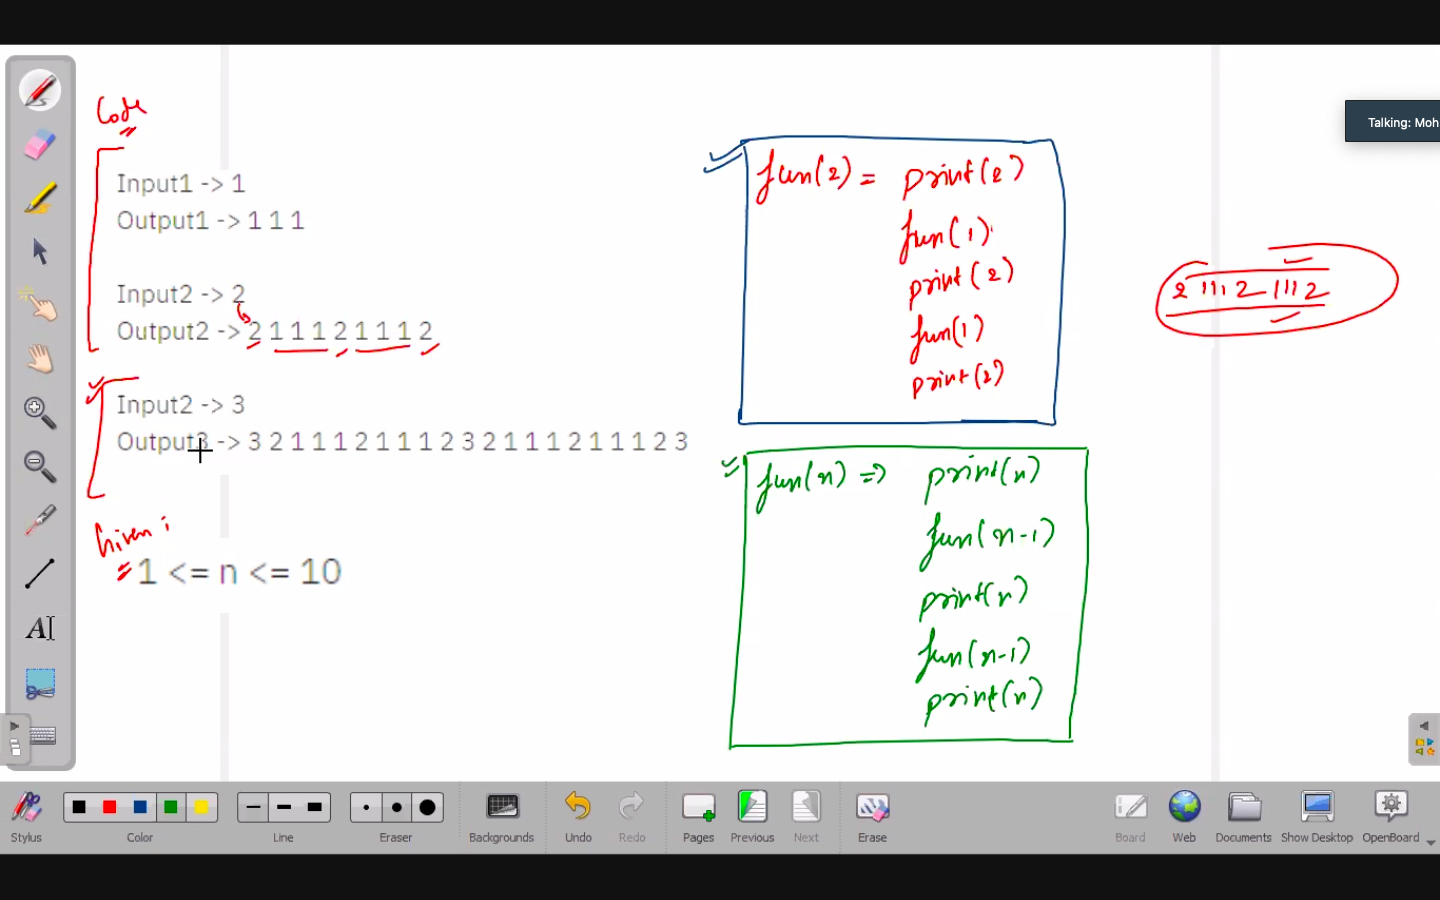 Talking: Moh
Code
Input1 -> 1
Output1 -> 1 1 1
Input2 -> 2
Output2 -> 2 1 1 1 2 1 1 1 2
Input2 -> 3
Output3 -> 3 2 1 1 1 2 1 1 1 2 3 2 1 1 1 2 1 1 1 2 3
Given :
1 <= n <= 10
fun(2) = print(2)
fun(1)
print(2)
fun(1)
print(2)
2 111 2 111 2
fun(n) => print(n)
fun(n-1)
print(n)
fun(n-1)
print(n)
AI
Stylus
Color
Line
Eraser
Backgrounds
Undo
Redo
Pages
Previous
Next
Erase
Board
Web
Documents
Show Desktop
OpenBoard